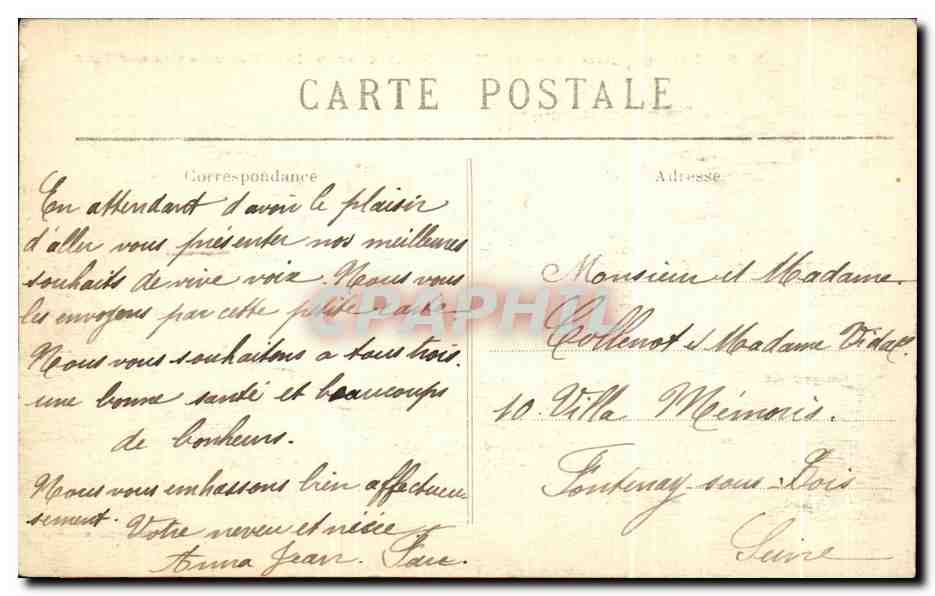 CARTE POSTALE
Correspondance
En attendant d'avoir le plaisir
d'aller vous présenter nos meilleures
souhaits de vive voix. Nous vous
les envoyons par cette petite carte
Nous vous souhaitons a tous trois.
une bonne santé et beaucoups
de bonheurs.
Nous vous embassons bien affectueu
sement. Votre neveu et nièce
Anna Jean.
Adresse
Monsieur et Madame.
Collenot et Madame Vidal.
10. Villa Mémoris.
Fontenay-sous-Bois
Seine
CPAPHIL